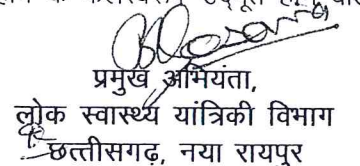 प्रमुख अभियंता,
लोक स्वास्थ्य यांत्रिकी विभाग
छत्तीसगढ़, नया रायपुर